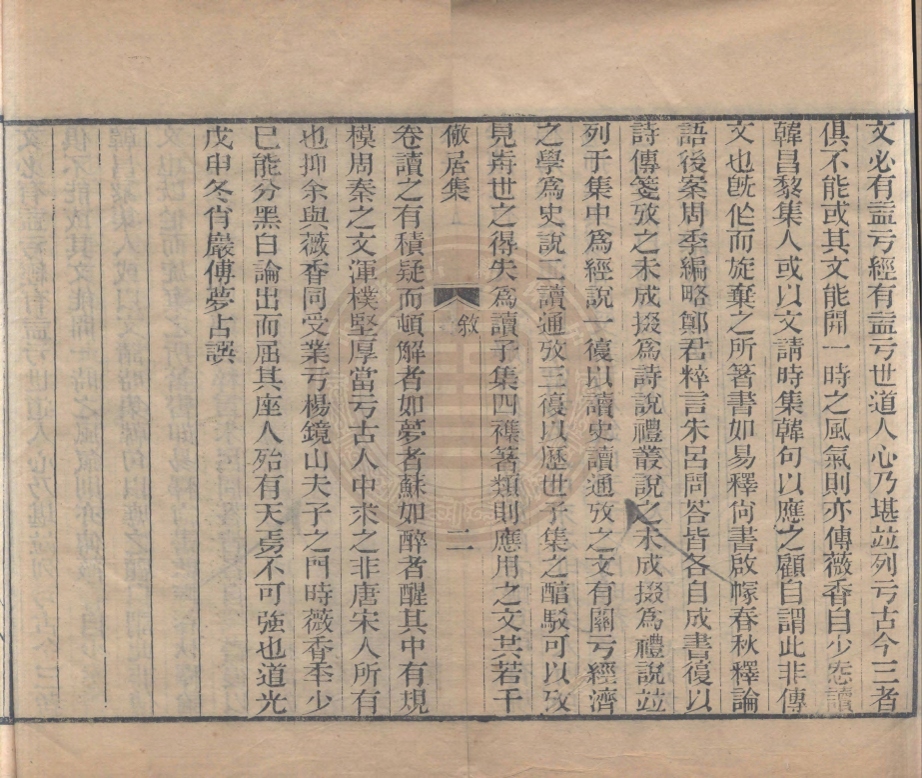 文必有益亏經有益亏世道人心乃堪竝列亏古今三者
俱不能或其文能開一時之風氣則亦傳薇香自少悉讀
韓昌黎集人或以文請時集韓句以應之顧自謂此非傳
文也旣作而旋棄之所箸書如易釋尙書啟幪春秋釋論
語後案周季編略鄭君粹言朱呂問答皆各自成書復以
詩傳箋攷之未成掇爲詩說禮叢說之未成掇爲禮說竝
列于集中爲經說一復以讀史讀通攷之文有關亏經濟
之學爲史說二讀通攷三復以歷世子集之醇駁可以攷
見歬世之得失爲讀子集四襍箸類則應用之文共若干
儆居集 敘 二
卷讀之有積疑而頓解者如夢者蘇如醉者醒其中有規
模周秦之文渾樸堅厚當亏古人中求之非唐宋人所有
也抑余與薇香同受業亏楊鏡山夫子之門時薇香季少
已能分黑白論出而屈其座人殆有天㝵不可強也道光
戊申冬肖巖傅夢占譔